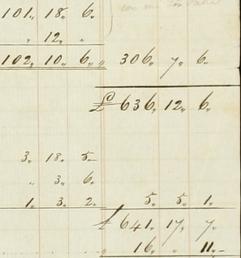 101,, 18,, 6,,
,, 12,, ,,
102,, 10,, 6,, 306,, 7,, 6,,
£ 636,, 12,, 6,,
3,, 18,, 5
,, 3,, 6,,
1,, 3,, 2,, 5,, 5,, 1,,
£ 641,, 17,, 7,,
16,, ,, 11,,